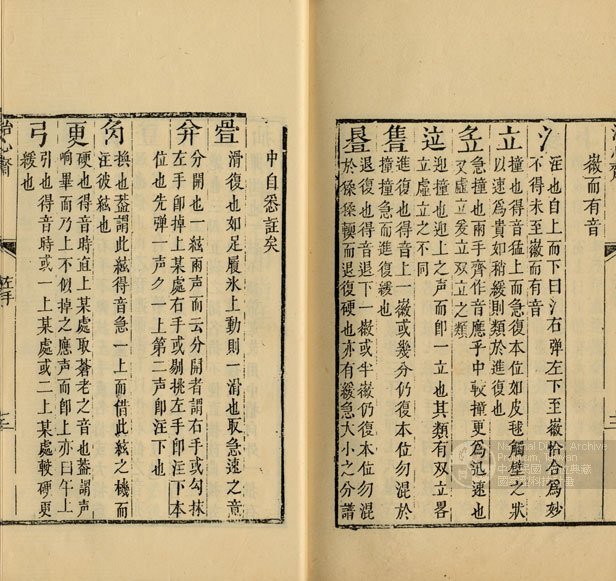 徽而有音
氵
注也自上而下曰氵右彈左下至徽恰合為妙
不得未至徽而有音
立
撞也得音猛上而急復本位如皮毬解壁之狀
以速為貴如稍緩則類於進復也
急撞也兩手齊作音應乎中較撞更為迅速也
又虛立爰立双立之類
迎撞也迎上之声而即一立也其類有双立畧
立之不同
進復也得音上一徽或幾分仍復本位勿混於
撞撞急而進復緩也
退復也得音退下一徽或半徽仍復本位勿混
於猱猱輭而退復硬也亦有緩急大小之分譜
中自悉註矣
滑復也如足履氷上動則一滑也取急速之意
分開也一絃兩声而云分開者謂右手或勾抹
左手即掉上某處右手或剔挑左手即汪下本
位也先彈一声夂一上第二声即汪下也
換也葢謂此絃得音急一上而借此絃之機而
汪彼絃也
更
硬也得音時直上某處取蒼老之音也葢謂声
响畢而乃上不似掉之應声而即上亦曰午上
弓
引也得音時或一上某處或二上某處較硬更
緩也
左手
National Digital Archive
Program, Taiwan